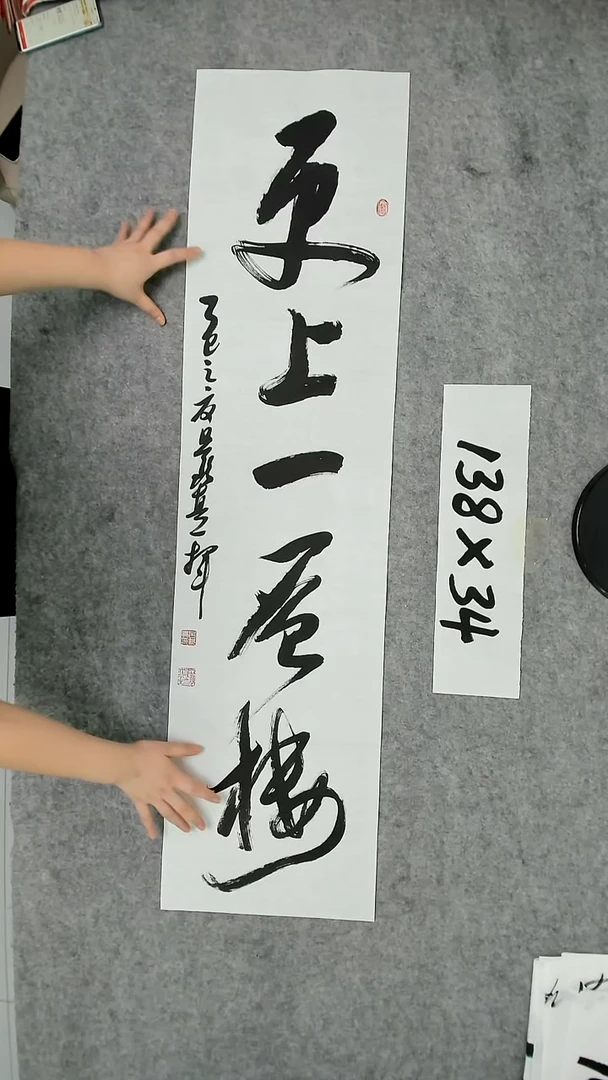 更上一层楼
乙巳之夏吴
138×34